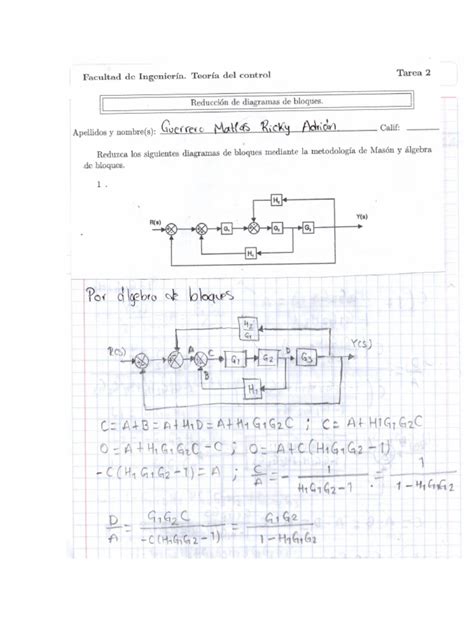 Facultad de Ingeniería. Teoría del control Tarea 2
Reducción de diagramas de bloques.
Apellidos y nombre(s): Guerrero Matías Ricky Adrián Calif:
Reduzca los siguientes diagramas de bloques mediante la metodología de Masón y álgebra
de bloques.
1 .
H₂
R(s) G₁ G₂ G₃ Y(s)
H₁
Por álgebra de bloques
H₂/G₁
R(S) A C G₁ G₂ D G₃ Y(S)
B H₁
C = A+B = A+H₁D = A+H₁G₁G₂C ; C = A+H1G₁G₂C
0 = A+H₁G₁G₂C-C ; 0 = A+C(H₁G₁G₂-1)
-C(H₁G₁G₂-1) = A ; C/A = - 1/(H₁G₁G₂-1) = 1/(1-H₁G₁G₂)
D/A = G₁G₂C/(-C(H₁G₁G₂-1)) = G₁G₂/(1-H₁G₁G₂)